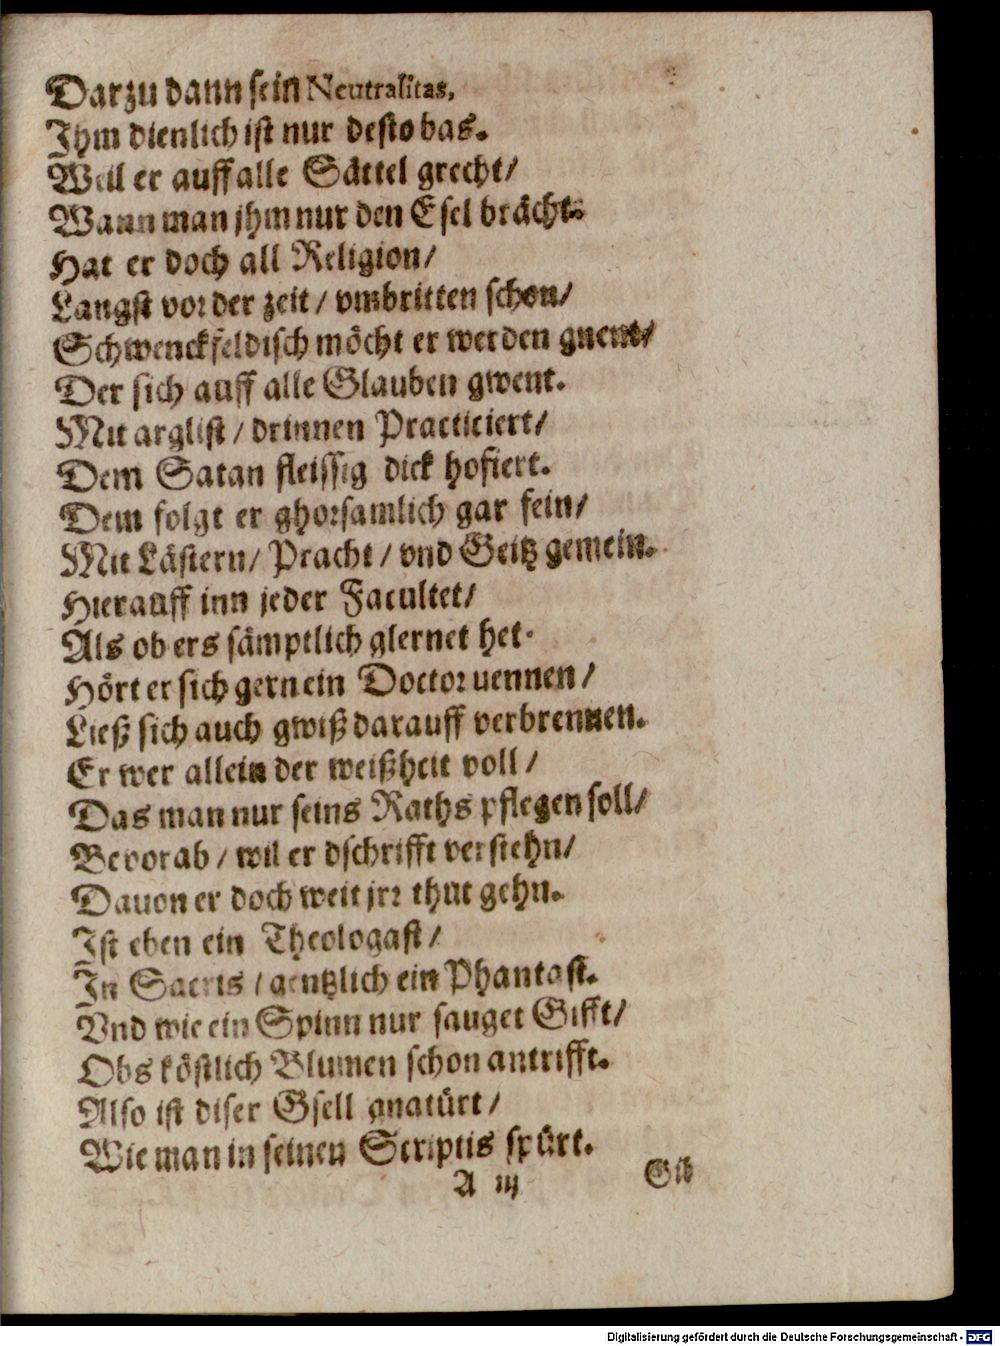 Darzu dann sein Neutralitas,
Ihm dienlich ist nur desto bas.
Weil er auff alle Sättel grecht/
Wann man jhm nur den Esel brächt.
Hat er doch all Religion/
Langst vor der zeit / vmbritten schon/
Schwenckfeldisch möcht er werden gnent/
Der sich auff alle Glauben gwent.
Mit arglist / drinnen Practiciert/
Dem Satan fleissig dick hofiert.
Dem folgt er ghorsamlich gar fein/
Mit Lästern/ Pracht / vnd Geitz gemein.
Hierauff inn jeder Facultet/
Als ob ers sämptlich glernet het.
Hört er sich gern ein Doctor uennen /
Ließ sich auch gwiß darauff verbrennen.
Er wer allein der weißheit voll /
Das man nur seins Raths pflegen soll/
Bevorab / wil er dschrifft verstehn/
Dauon er doch weit jrr thut gehn.
Ist eben ein Theologast /
In Sacris / gentzlich ein Phantast.
Vnd wie ein Spinn nur sauget Gifft/
Obs köstlich Blumen schon antrifft.
Also ist diser Gsell gnatürt /
Wie man in seinen Scriptis spürt.
A iij
Gib
Digitalisierung gefördert durch die Deutsche Forschungsgemeinschaft - DFG